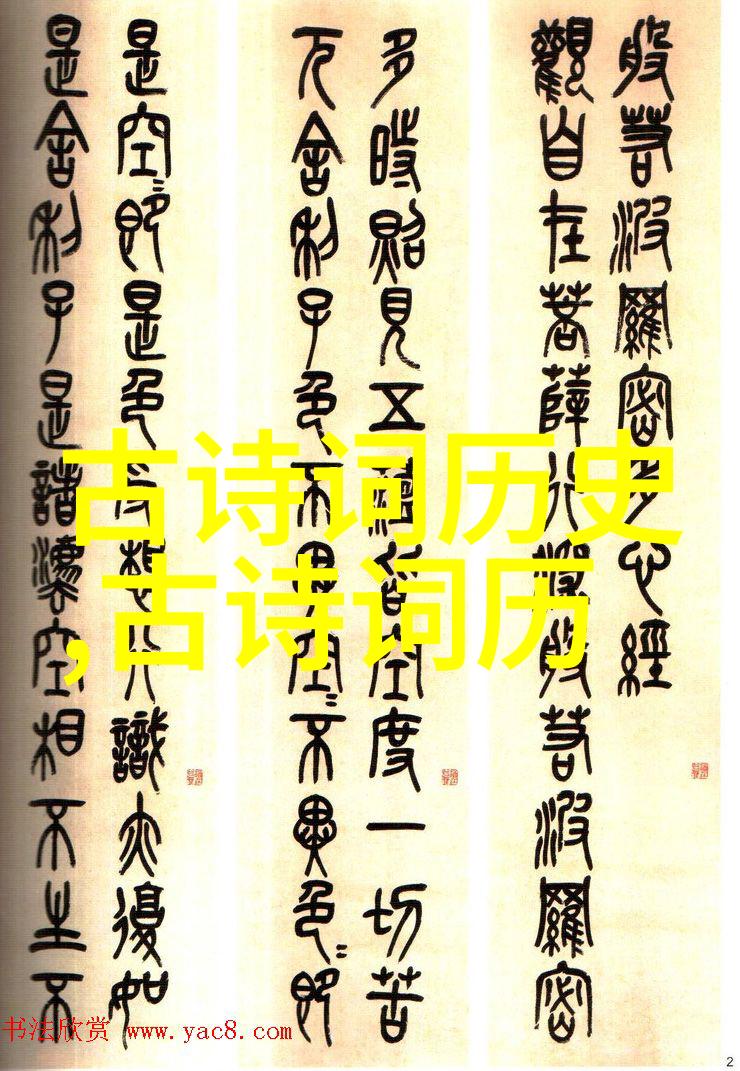 般若波羅密多心經
觀自在菩薩行深般若波羅密
多時照見五蘊皆空度一切苦
厄舍利子色不異空〻不異色〻即
是空〻即是色受想行識亦復如
是舍利子是諸灋空相不生不
古诗词历史
,古诗词历
书法欣赏 www.yac8.com
2